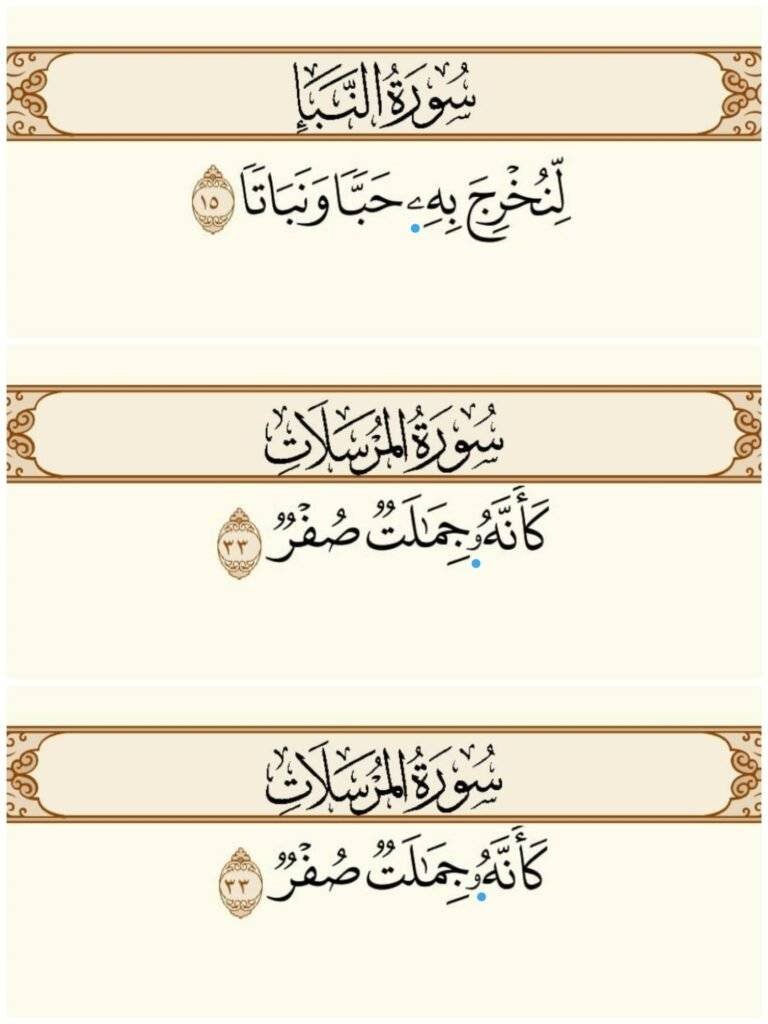 سُورَةُ النَّبَإِ
لِّنُخْرِجَ بِهِۦ حَبًّا وَنَبَاتًا ١٥
سُورَةُ المُرْسَلَاتِ
كَأَنَّهُۥ جِمَٰلَتٌ صُفْرٌ ٣٣
سُورَةُ المُرْسَلَاتِ
كَأَنَّهُۥ جِمَٰلَتٌ صُفْرٌ ٣٣